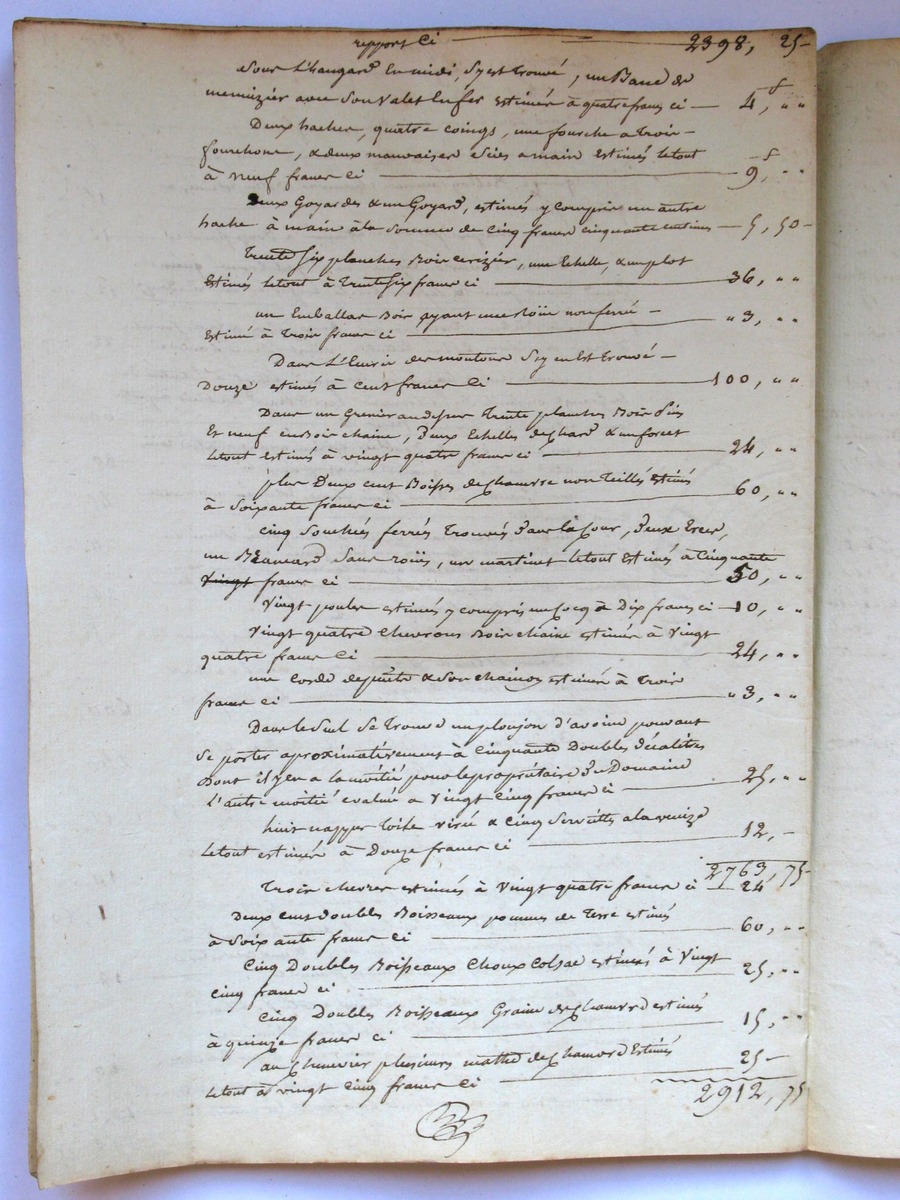 report Ci 2398, 25
Sous L'hangard En midi, Sy est trouvé, un Banc de
menuizier avec Son Valet En fer estimés à quatre francs ci 4, " "
Deux haches, quatre coings, une fourche a trois
fourchons, & deux mauvaises Scies a main Estimés letout
à neuf francs Ci 9, " "
Deux Goyardes & un Goyard, estimés y compris un autre
hache à main à la Somme de Cinq francs cinquante centimes 5, 50
Trente Six planches Bois cerizier, une Echelle, & un plot
Estimés letout à Trente Six francs ci 36, " "
un Emballas Bois ayant une roüe non ferré
Estimé à Trois francs ci " 3, " "
Dans L'Ecurie des moutons S'y en Est trouvé
Douze estimés à Cent francs Ci 100, " "
Dans un Grenier audessus Trente planches Bois
Et neuf en Bois chaine, Deux Echelles de Chard &
letout estimés à vingt quatre francs ci 24, " "
plus Deux cent Boisses de Chanvre non Teillés estimés
à Soixante francs ci 60, " "
Cinq ferrés Trouvés Dans la Cour, Deux
un Sans roües, un martinet letout Estimés à Cinquante
Vingt francs ci 50, " "
Vingt poules estimés y compris un Cocq à Dix francs ci 10, " "
Vingt quatre Chevrons Bois chaine estimés à Vingt
quatre francs Ci 24, " "
une Corde & Son chainon estimés à Trois
francs ci " 3, " "
Dans le Suel Se trouve un ploujon d'avoine pouvant
Se porter aproximativement à Cinquante Doubles Décalitres
Dont il y en a la moitié pour le propriétaire Du Domaine
L'autre moitié evalué a Vingt Cinq francs ci 25, " "
huit nappes toile & Cinq Serviettes
letout estimés à Douze francs ci 12, -
2763, 75
Trois chevres estimées à Vingt quatre francs ci 24
Deux cent doubles Boisseaux pommes de Terre estimés
à Soixante francs Ci 60, " "
Cinq Doubles Boisseaux Choux Colsac estimés à Vingt
Cinq francs ci 25, " "
Cinq Doubles Boisseaux Graine de Chanvre estimés
à quinze francs ci 15, " "
au Chenevier plusieurs de Chanvre Estimés
letout à vingt Cinq francs Ci 25 -
2912, 75